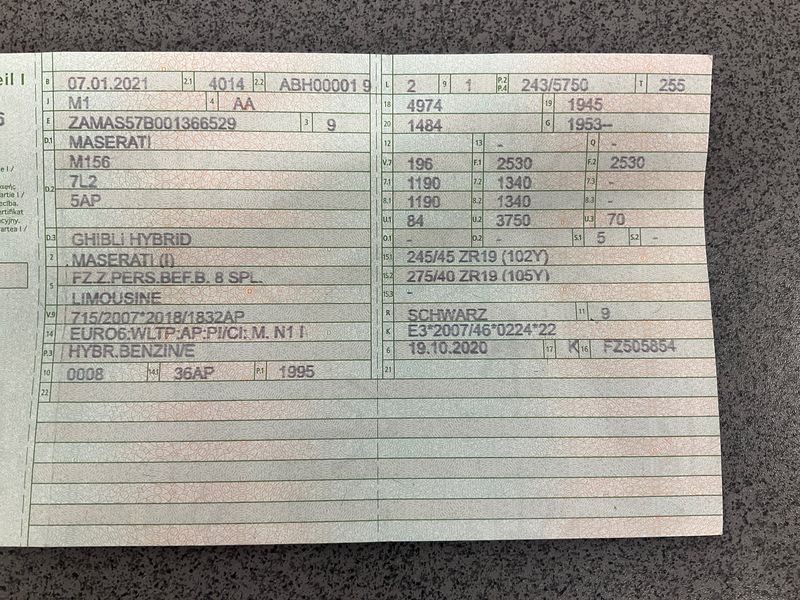 eil I
B 07.01.2021 2.1 4014 2.2 ABH00001 9
J M1 4 AA
E ZAMAS57B001366529 3 9
D.1 MASERATI
M156
D.2 7L2
5AP
D.3 GHIBLI HYBRID
2 MASERATI (I)
5 FZ.Z.PERS.BEF.B. 8 SPL.
LIMOUSINE
V.9 715/2007*2018/1832AP
14 EURO6;WLTP;AP;PI/CI; M, N1 I
P.3 HYBR.BENZIN/E
10 0008 14.1 36AP P.1 1995
22
L 2 9 1 P.2 P.4 243/5750 T 255
18 4974 19 1945
20 1484 G 1953--
12 13 - Q -
V.7 196 F.1 2530 F.2 2530
7.1 1190 7.2 1340 7.3 -
8.1 1190 8.2 1340 8.3 -
U.1 84 U.2 3750 U.3 70
O.1 - O.2 - S.1 5 S.2 -
15.1 245/45 ZR19 (102Y)
15.2 275/40 ZR19 (105Y)
15.3 -
R SCHWARZ 11 9
K E3*2007/46*0224*22
6 19.10.2020 17 K 16 FZ505854
21